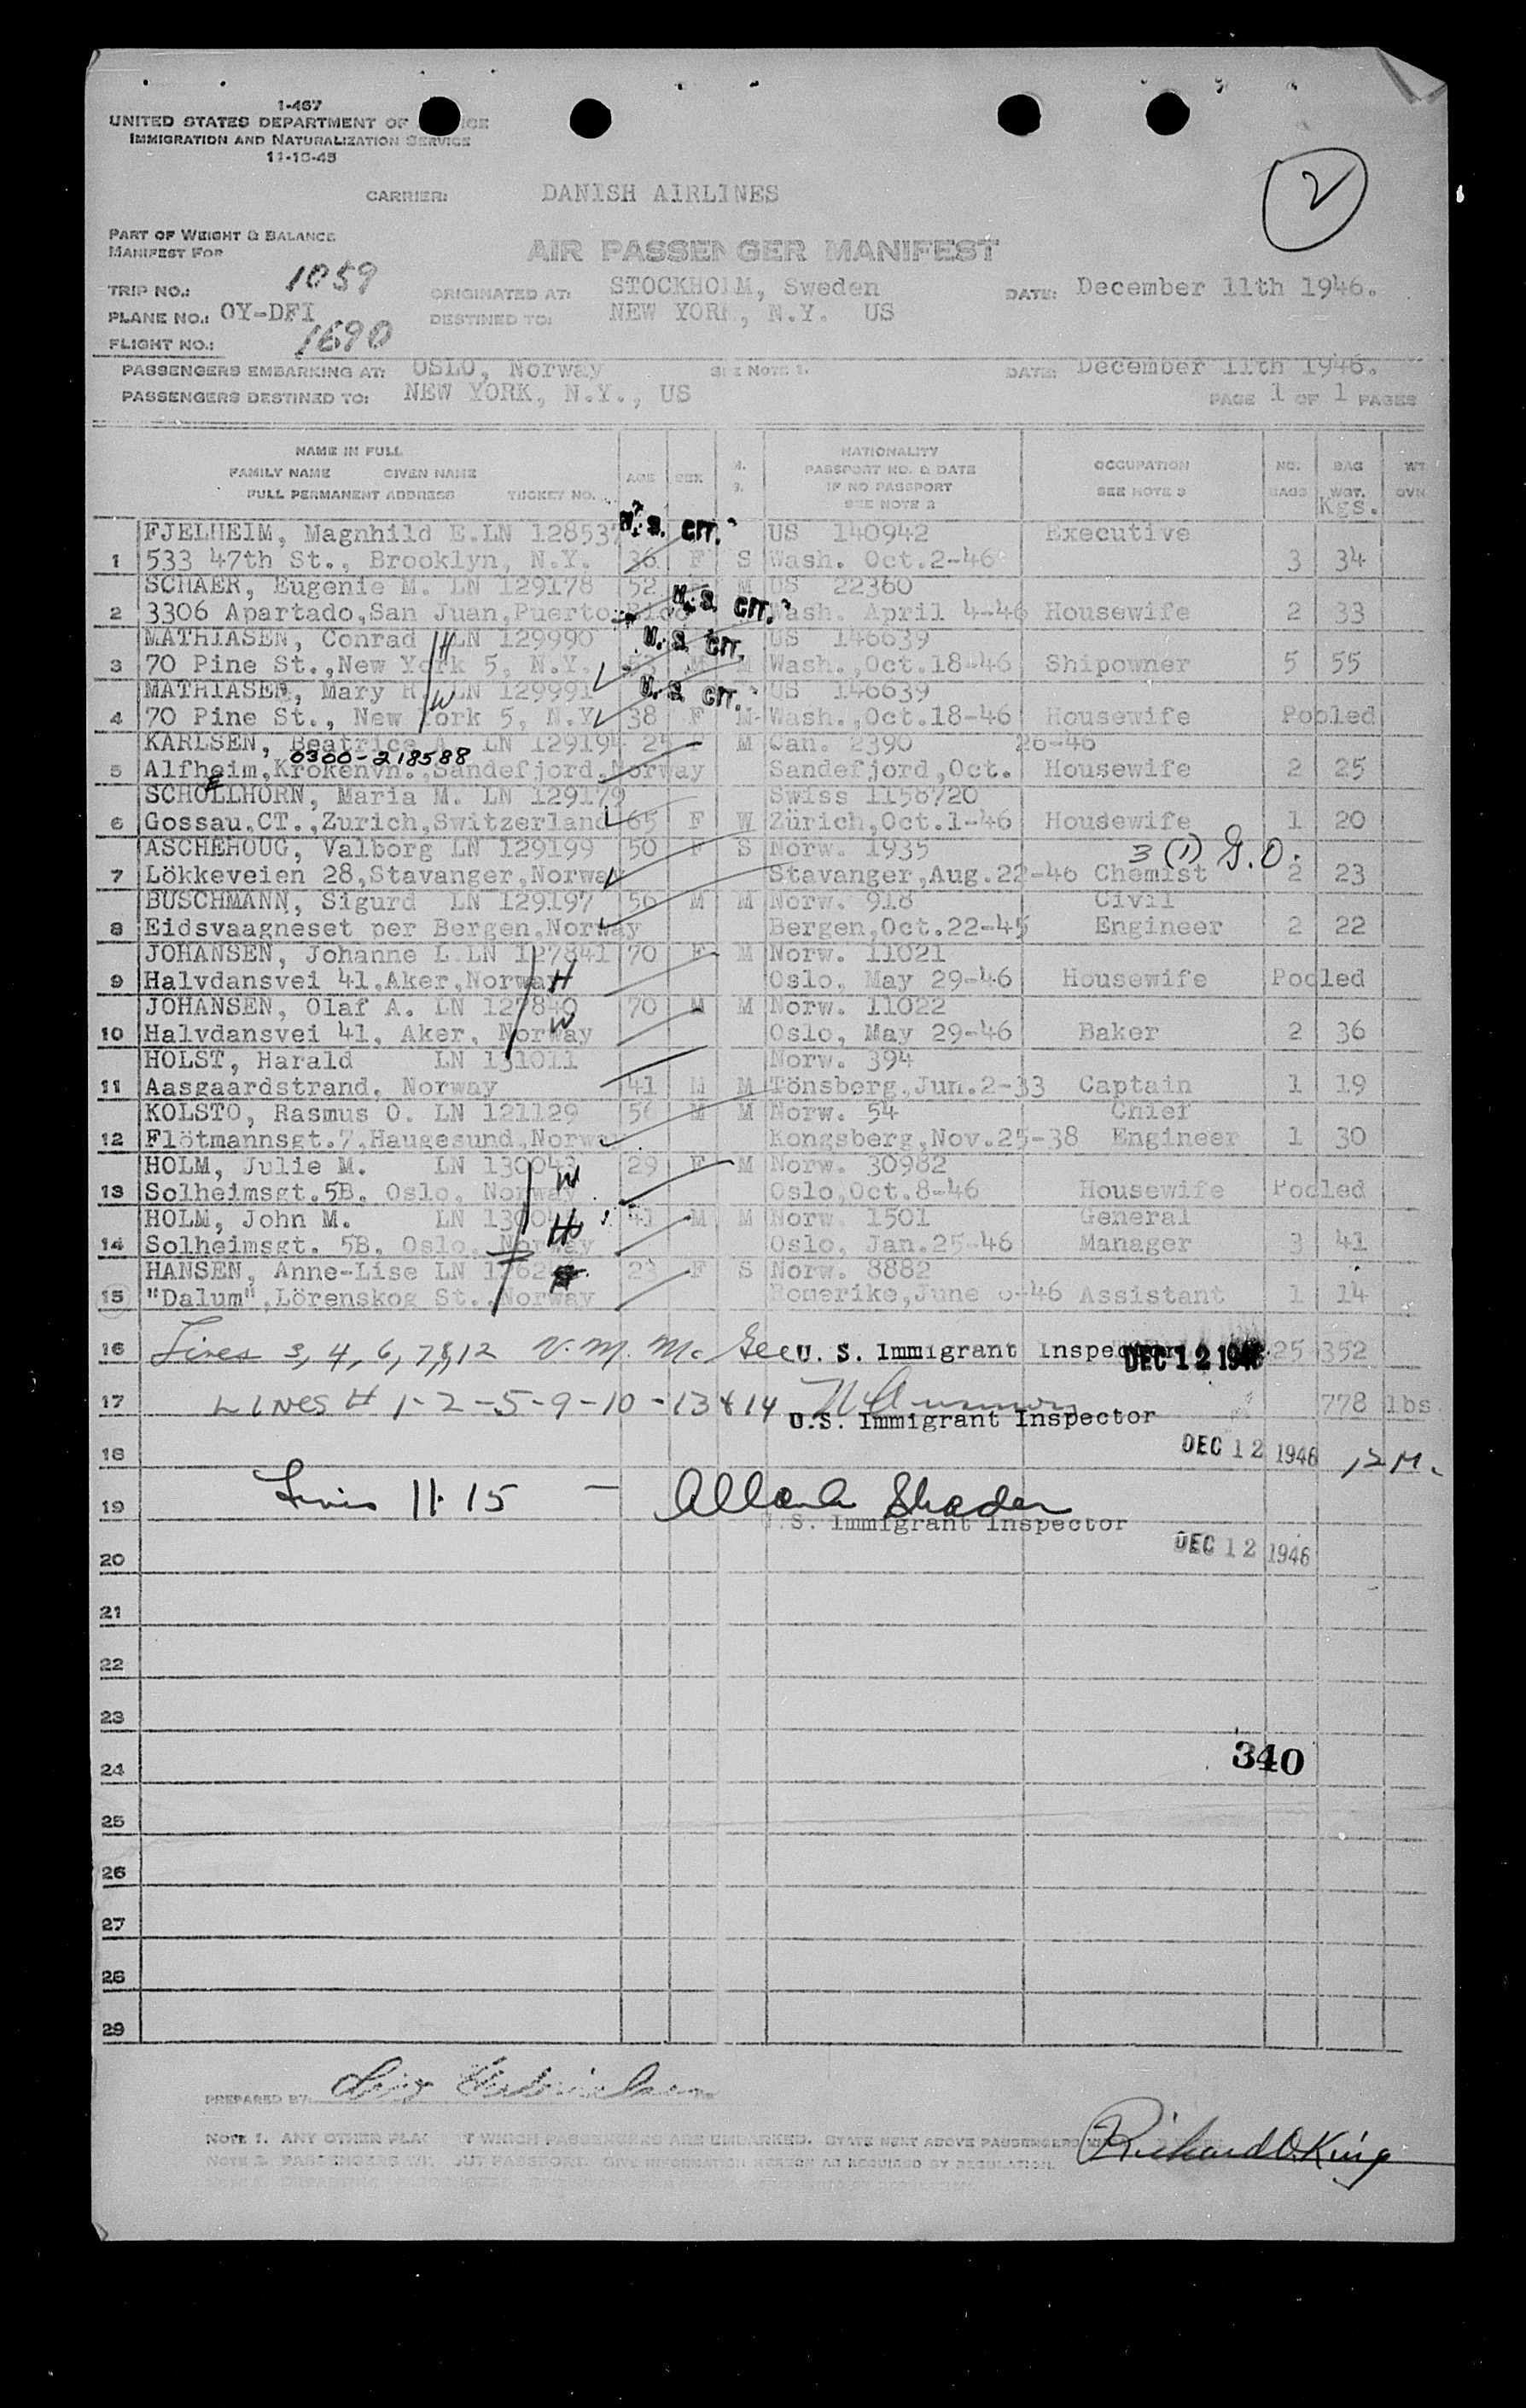 1-467
UNITED STATES DEPARTMENT OF
IMMIGRATION AND NATURALIZATION SERVICE
11-15-45
2
CARRIER: DANISH AIRLINES
PART OF WEIGHT & BALANCE
MANIFEST FOR
AIR PASSENGER MANIFEST
TRIP NO.: 1059 ORIGINATED AT: STOCKHOLM, Sweden DATE: December 11th 1946.
PLANE NO.: OY-DFI DESTINED TO: NEW YORK, N.Y. US
FLIGHT NO.: 1690
PASSENGERS EMBARKING AT: OSLO, Norway SEE NOTE 1. DATE: December 11th 1946.
PASSENGERS DESTINED TO: NEW YORK, N.Y., US PAGE 1 OF 1 PAGES
NAME IN FULL NATIONALITY
FAMILY NAME GIVEN NAME AGE SEX M. PASSPORT NO. & DATE OCCUPATION NO. BAG WT.
FULL PERMANENT ADDRESS TICKET NO. S. IF NO PASSPORT SEE NOTE 3 BAGS WGT. OVN
SEE NOTE 2 Kgs.
FJELHEIM, Magnhild E. LN 128537 U.S. CIT. US 140942 Executive
1 533 47th St., Brooklyn, N.Y. 36 F S Wash. Oct.2-46 3 34
SCHAER, Eugenie M. LN 129178 52 M US 22360
2 3306 Apartado,San Juan,Puerto Rico U.S. CIT. Wash. April 4-46 Housewife 2 33
MATHIASEN, Conrad H LN 129990 U.S. CIT. US 146639
3 70 Pine St.,New York 5, N.Y. 53 M M Wash.,Oct.18-46 Shipowner 5 55
MATHIASEN, Mary R. W LN 129991 U.S. CIT. US 146639
4 70 Pine St., New York 5, N.Y. 38 F M Wash.,Oct.18-46 Housewife Pooled
KARLSEN, Beatrice A. LN 129194 F M Can. 2390 26-46
0300-218588
5 Alfheim,Krokenvn.,Sandefjord,Norway Sandefjord,Oct. Housewife 2 25
E
SCHOLLHORN, Maria M. LN 129179 Swiss 1156720
6 Gossau,CT.,Zurich,Switzerland 65 F W Zürich,Oct.1-46 Housewife 1 20
ASCHEHOUG, Valborg LN 129199 50 F S Norw. 1935 3 (1) G.O.
7 Lökkeveien 28,Stavanger,Norway Stavanger,Aug.22-46 Chemist 2 23
BUSCHMANN, Sigurd LN 129197 56 M M Norw. 918 Civil
8 Eidsvaagneset per Bergen,Norway Bergen,Oct.22-45 Engineer 2 22
JOHANSEN, Johanne L. LN 127841 70 F M Norw. 11021
9 Halvdansvei 41,Aker,Norway H Oslo, May 29-46 Housewife Pooled
JOHANSEN, Olaf A. LN 127840 70 M M Norw. 11022
10 Halvdansvei 41, Aker, Norway W Oslo, May 29-46 Baker 2 36
HOLST, Harald LN 131011 Norw. 394
11 Aasgaardstrand, Norway 41 M M Tönsberg,Jun.2-33 Captain 1 19
KOLSTO, Rasmus O. LN 121129 56 M M Norw. 54 Chief
12 Flötmannsgt.7,Haugesund,Norway Kongsberg,Nov.25-38 Engineer 1 30
HOLM, Julie M. LN 130043 W 29 F M Norw. 30982
13 Solheimsgt.5B, Oslo, Norway Oslo,Oct.8-46 Housewife Pooled
HOLM, John M. LN H 41 M M Norw. 1501 General
14 Solheimsgt. 5B, Oslo, Norway Oslo, Jan.25-46 Manager 3 41
HANSEN, Anne-Lise LN 23 F S Norw. 8882
15 "Dalum",Lörenskog St.,Norway Romerike,June 6-46 Assistant 1 14
16 Lines 3, 4, 6, 7, 8, 12 V. M. McGee U. S. Immigrant Inspector DEC 12 1946 25 352
17 LINES # 1-2-5-9-10-13 & 14 U.S. Immigrant Inspector 778 lbs
18 DEC 12 1946 12 M.
19 Lines 11-15 — U.S. Immigrant Inspector
20 DEC 12 1946
21
22
23
24 340
25
26
27
28
29
PREPARED BY:
NOTE 1. ANY OTHER PLACE AT WHICH PASSENGERS ARE EMBARKED. STATE NEXT ABOVE PASSENGERS
Richard O. King
NOTE 2. PASSENGERS WITHOUT PASSPORT. GIVE INFORMATION HEREON AS REQUIRED BY REGULATION.